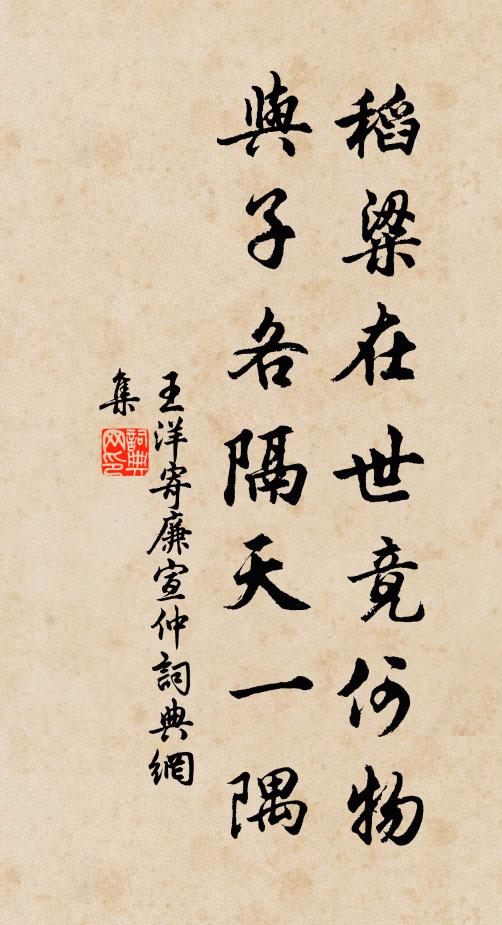 稻粱在世竟何物
與子各隔天一隅
王洋寄廉宣仲詞典網
集
詞典
网印